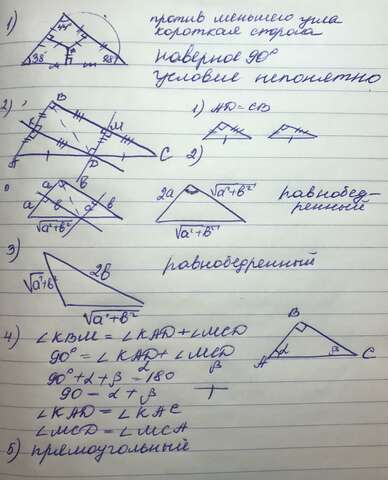 1) против меньшего угла
короткая сторона
38° 28°
наверное 90°
условие непонятно
2) B
K M
A D C
1) AD = CB
2)
a b
a b a b
√a²+b²
2a √a²+b²
√a²+b²
равнобед-
ренный
3) √a²+b² 2b
√a²+b²
равнобедренный
4) ∠KBM = ∠KAD + ∠MCD
90° = ∠KAD + ∠MCD
α β
90° + α + β = 180
90 = α + β
∠KAD = ∠KAC
∠MCD = ∠MCA
B
A α β C
5) прямоугольный